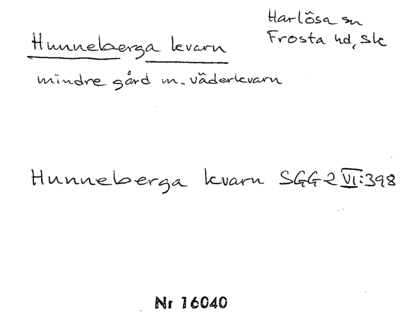 Harlösa sn
Frosta hd, Sk
Hunneberga kvarn
mindre gård m. väderkvarn
Hunneberga kvarn SGG2 VI:398
Nr 16040